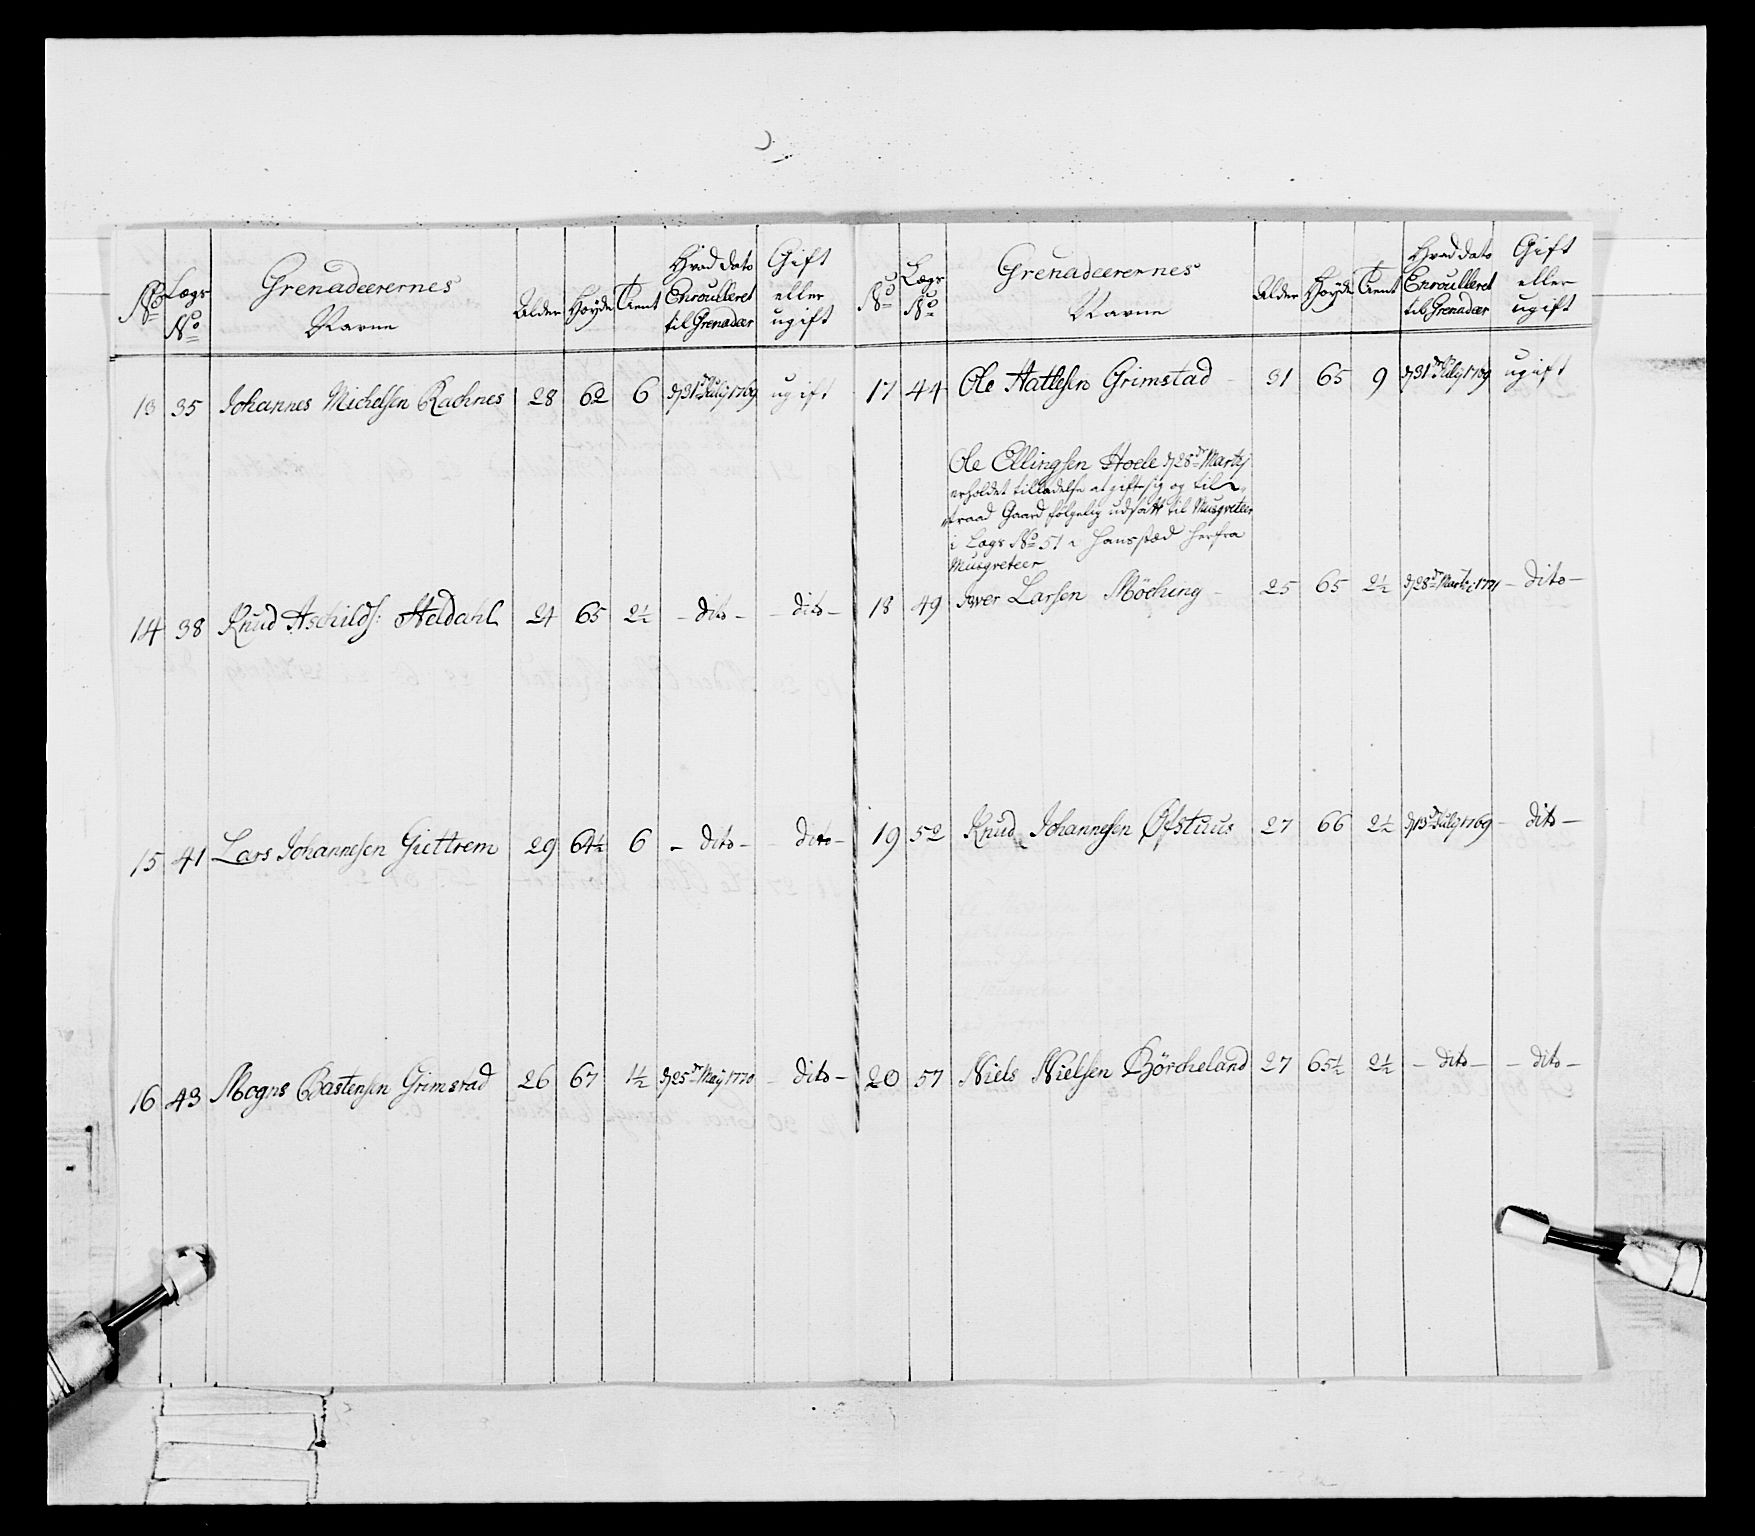 No Lægs No Grenadeerernes Navne Alder Høyde Tient Hvad dato Enroulleret til Grenadeer Gift eller ugift
13 35 Johannes Michelsen Rachnes 28 62 6 d 31te Julij 1769 ugift
14 38 Knud Aschilds: Heldahl 24 65 2½ - dito - - dito -
15 41 Lars Johannesen Giettrem 29 64½ 6 - dito - - dito -
16 43 Mogns Bastensen Grimstad 26 67 1½ d 25de Maij 1770 - dito -
No Lægs No Grenadeerernes Navne Alder Høyde Tient Hvad dato Enroulleret til Grenadeer Gift eller ugift
17 44 Ole Hatlesen Grimstad 31 65 9 d 31te Julij 1769 ugift
Ole Ellingsen Hoele d 28de Martij
erholdet tilladelse at gifte sig og til
traad Gaard følgelig udsatt til Musqreteer
i Lægs No 51 i hans stæd herfra
Musqreteer
18 49 Iver Larsen Möching 25 65 2½ d 28de Martij 1771 - dito -
19 52 Knud Johannesen Øfstuus 27 66 2½ d 13de Julij 1769 - dito -
20 57 Niels Nielsen Börcheland 27 65½ 2½ - dito - - dito -